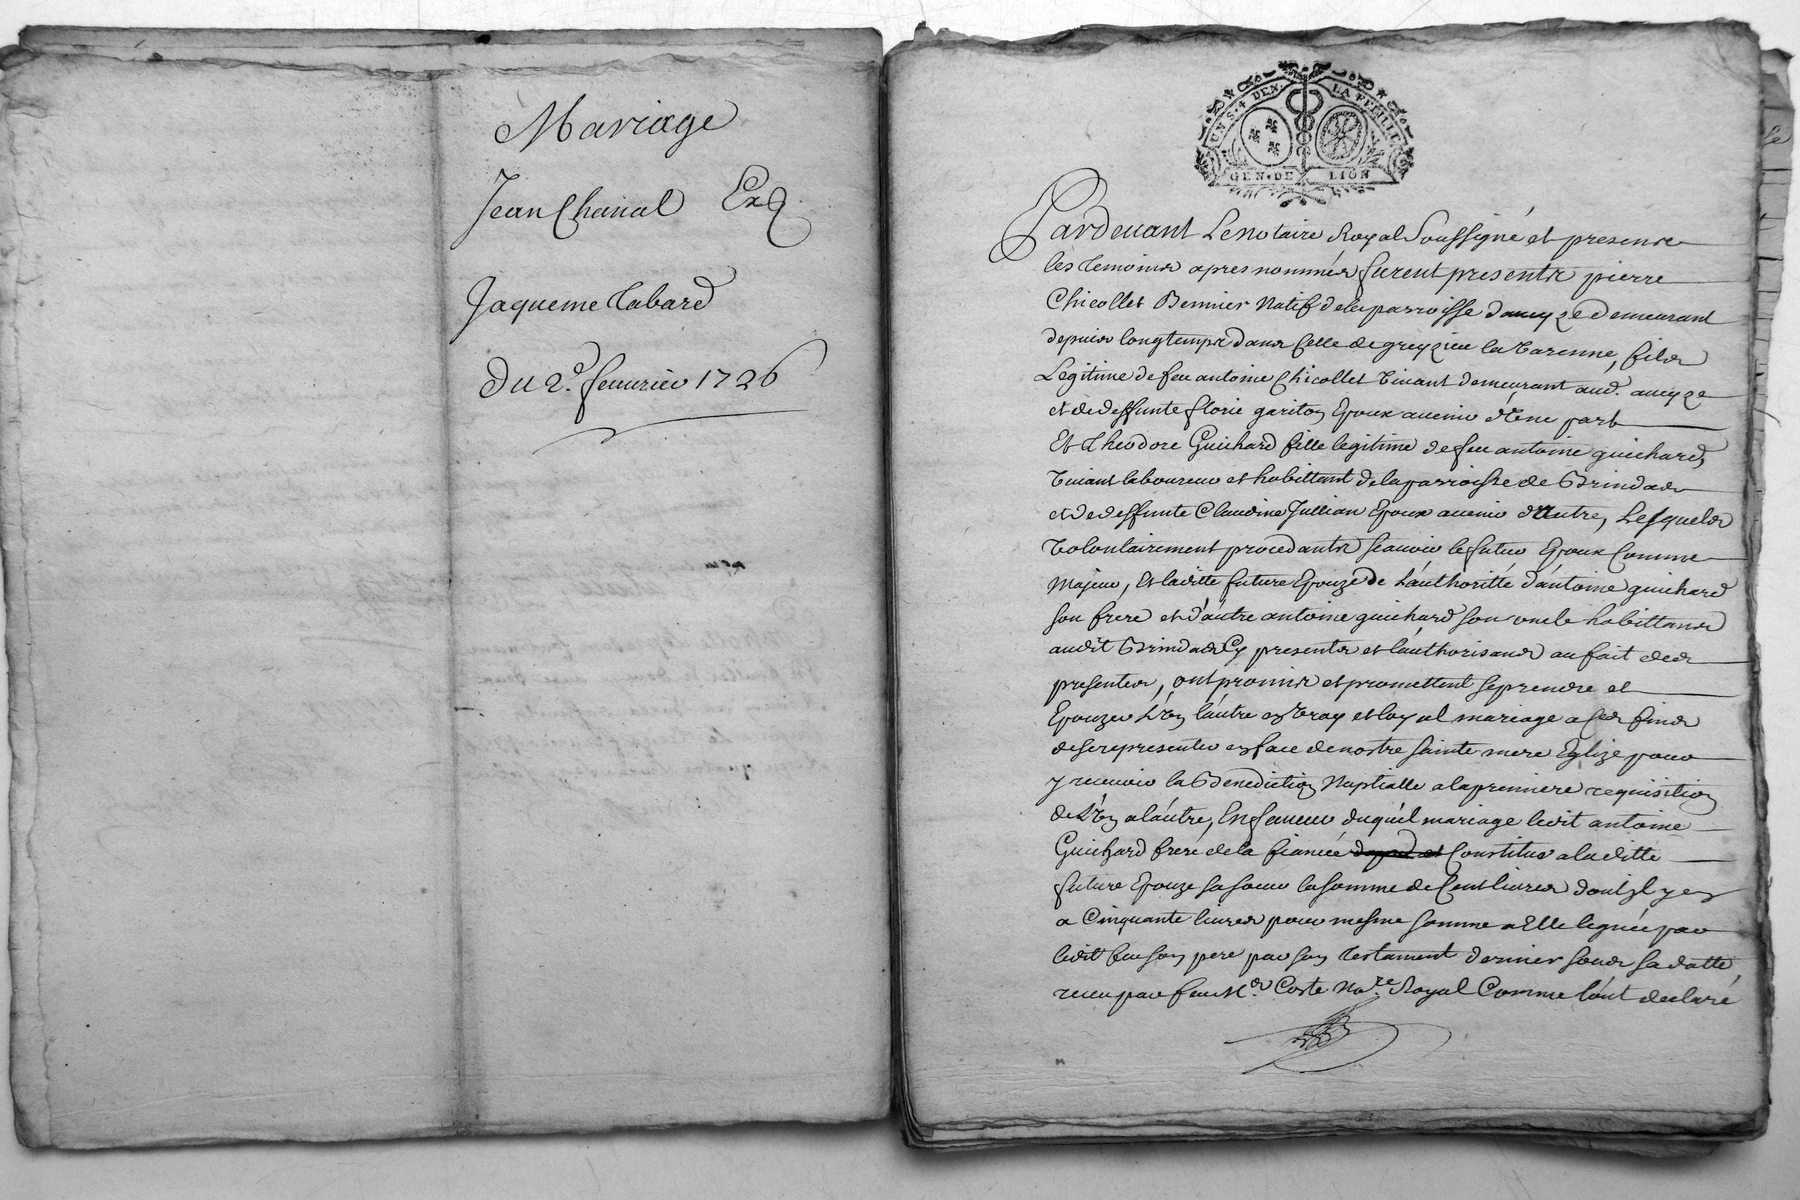 Mariage
Jean Chanal Et
Jaqueme Tabard
du 2e. feuurier 1726
UN S. 4 DEN. LA FEUILLE
GEN. DE LION
Pardeuant Le notaire Royal Soussigné et presence
les temoins apres nommés furent presents pierre
Chicollet Natif de la parroisse daueyze demeurant
depuis longtemps dans Celle de greyzieu la Varenne, fils
Legitime de feu antoine Chicollet viuant demeurant aud. aueyze
et de deffunte florie gariton Epoux auenir d'Vne part
Et Theodore Guichard fille legitime de feu antoine guichard,
viuant laboureur et habittant de la parroisse de Brindas
et de deffunte Claudine Jullian Epoux auenir d'Autre, Lesquels
volontairement procedants scauoir le futur Epoux Comme
majeur, Et laditte future Epouze de L'authoritté d'antoine guichard
son frere et d'autre antoine guichard son oncle habittans
audit Brindas Cy presents et l'authorisans au fait des
presentes, ont promis et promettent se prendre et
Epouzer L'Vn l'autre en vray et loyal mariage a Ces fins
de se representer en face de nostre sainte mere Eglize pour
y receuoir la Benediction Nuptialle a la premiere requisition
de L'Vn a l'autre, En faueur duquel mariage ledit antoine
Guichard frere de la fiancée Constitue a laditte
future Epouze sa soeur la somme de Cent liures dont il y en
a Cinquante liures pour mesme somme a Elle leguée par
ledit feu son pere par son testament dernier sous sa datte,
receu par feu Me. Coste Nore. Royal Comme l'ont declaré